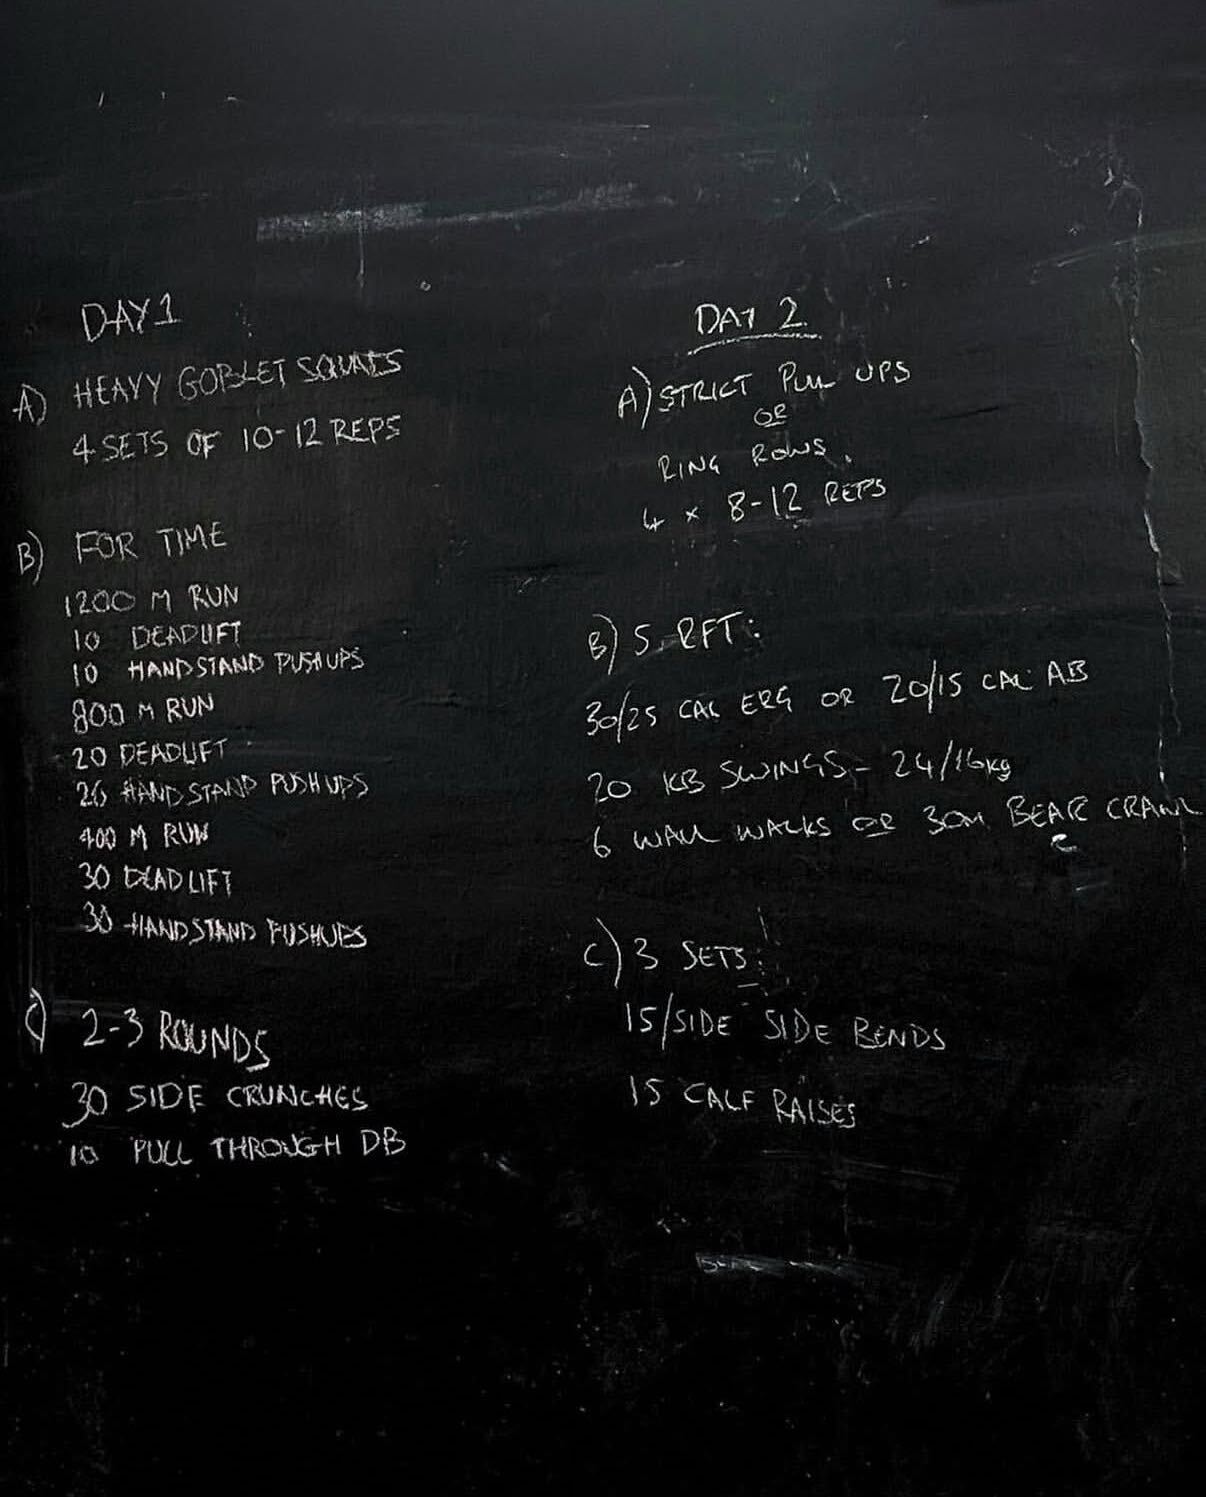 DAY 1
A) HEAVY GOBLET SQUATS
4 SETS OF 10-12 REPS
B) FOR TIME
1200 M RUN
10 DEADLIFT
10 HANDSTAND PUSHUPS
800 M RUN
20 DEADLIFT
20 HANDSTAND PUSHUPS
400 M RUN
30 DEADLIFT
30 HANDSTAND PUSHUPS
C) 2-3 ROUNDS
30 SIDE CRUNCHES
10 PULL THROUGH DB
DAY 2
A) STRICT PULL UPS
OR
RING ROWS.
4 x 8-12 REPS
B) 5 RFT:
30/25 CAL ERG OR 20/15 CAL AB
20 KB SWINGS - 24/16kg
6 WALL WALKS OR 30M BEAR CRAWL
C) 3 SETS:
15/SIDE SIDE BENDS
15 CALF RAISES